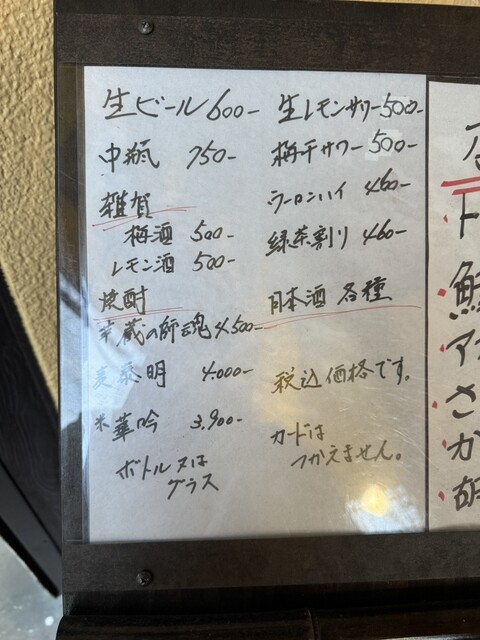 生ビール 600-
中瓶 750-
雑賀
梅酒 500-
レモン酒 500-
焼酎
芋 蔵の師魂 4,500-
麦 泰明 4.000-
米 華吟 3.900-
ボトル又は
グラス
生レモンサワー 500-
梅干サワー 500-
ウーロンハイ 460-
緑茶割り 460-
日本酒 各種
税込価格です。
カードは
つかえません。
ト
ア
さ
か